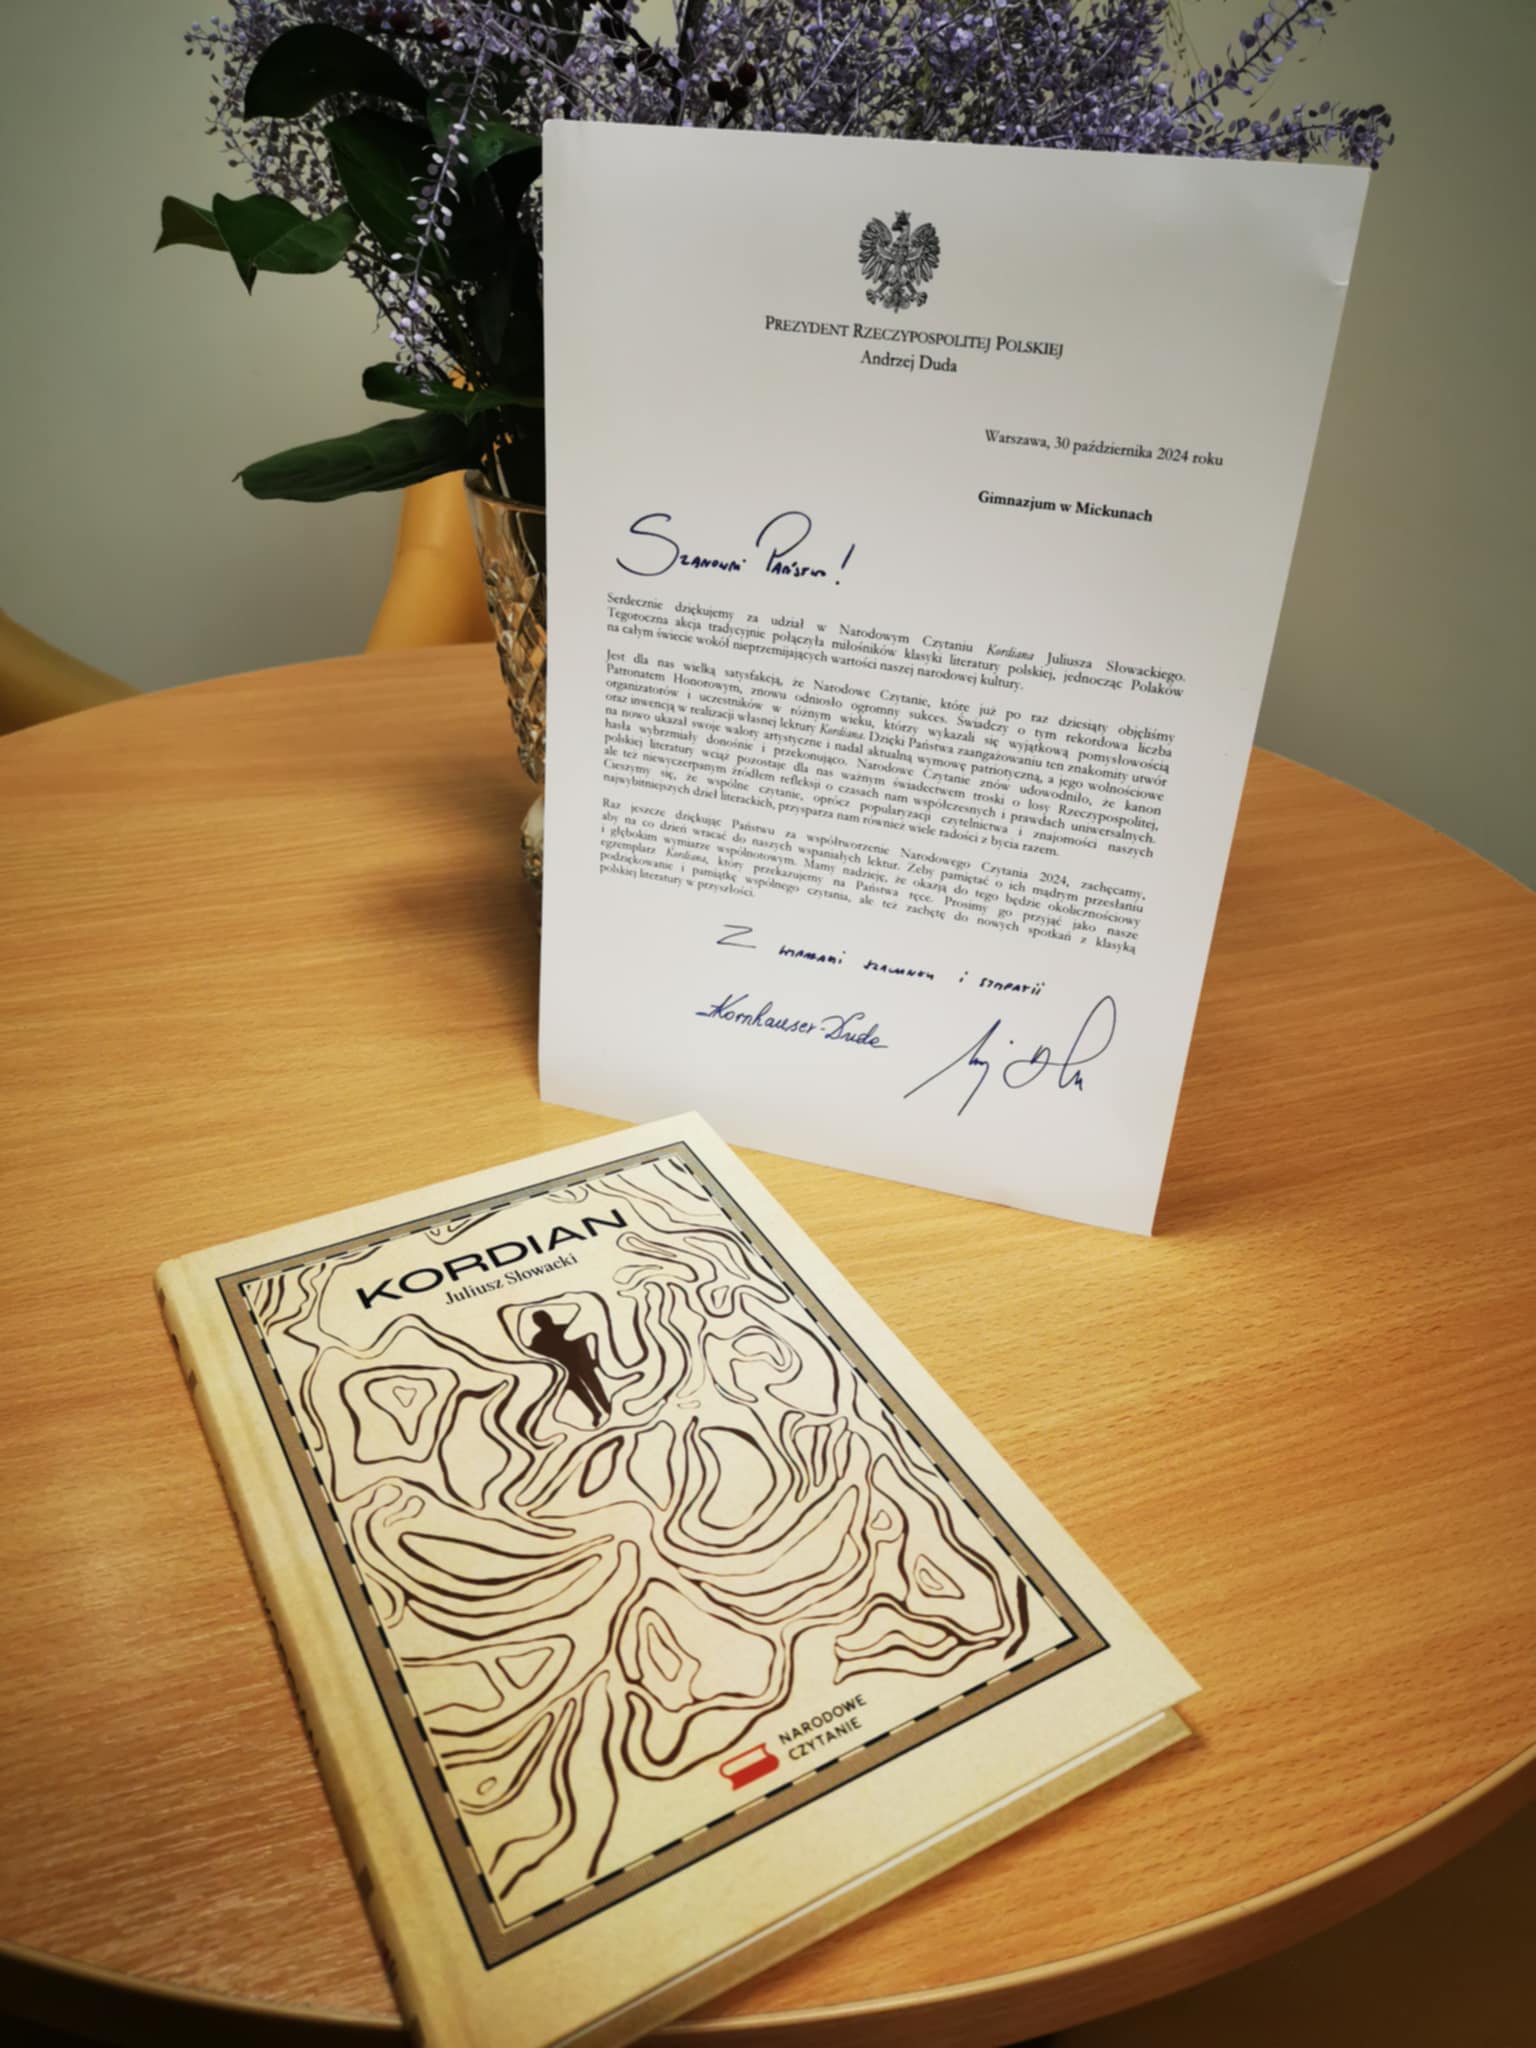 PREZYDENT RZECZYPOSPOLITEJ POLSKIEJ
Andrzej Duda
Warszawa, 30 października 2024 roku
Gimnazjum w Mickunach
Szanowni Państwo!
Serdecznie dziękujemy za udział w Narodowym Czytaniu Kordiana Juliusza Słowackiego.
Tegoroczna akcja tradycyjnie połączyła miłośników klasyki literatury polskiej, jednocząc Polaków
na całym świecie wokół nieprzemijających wartości naszej narodowej kultury.
Jest dla nas wielką satysfakcją, że Narodowe Czytanie, które już po raz dziesiąty objęliśmy
Patronatem Honorowym, znowu odniosło ogromny sukces. Świadczy o tym rekordowa liczba
organizatorów i uczestników w różnym wieku, którzy wykazali się wyjątkową pomysłowością
oraz inwencją w realizacji własnej lektury Kordiana. Dzięki Państwa zaangażowaniu ten znakomity utwór
na nowo ukazał swoje walory artystyczne i nadal aktualną wymowę patriotyczną, a jego wolnościowe
hasła wybrzmiały donośnie i przekonująco. Narodowe Czytanie znów udowodniło, że kanon
polskiej literatury wciąż pozostaje dla nas ważnym świadectwem troski o losy Rzeczypospolitej,
ale też niewyczerpanym źródłem refleksji o czasach nam współczesnych i prawdach uniwersalnych.
Cieszymy się, że wspólne czytanie, oprócz popularyzacji czytelnictwa i znajomości naszych
najwybitniejszych dzieł literackich, przysparza nam również wiele radości z bycia razem.
Raz jeszcze dziękując Państwu za współtworzenie Narodowego Czytania 2024, zachęcamy,
aby na co dzień wracać do naszych wspaniałych lektur. Żeby pamiętać o ich mądrym przesłaniu
i głębokim wymiarze wspólnotowym. Mamy nadzieję, że okazją do tego będzie okolicznościowy
egzemplarz Kordiana, który przekazujemy na Państwa ręce. Prosimy go przyjąć jako nasze
podziękowanie i pamiątkę wspólnego czytania, ale też zachętę do nowych spotkań z klasyką
polskiej literatury w przyszłości.
Z wyrazami szacunku i sympatii
Kornhauser-Duda
KORDIAN
Juliusz Słowacki
NARODOWE
CZYTANIE